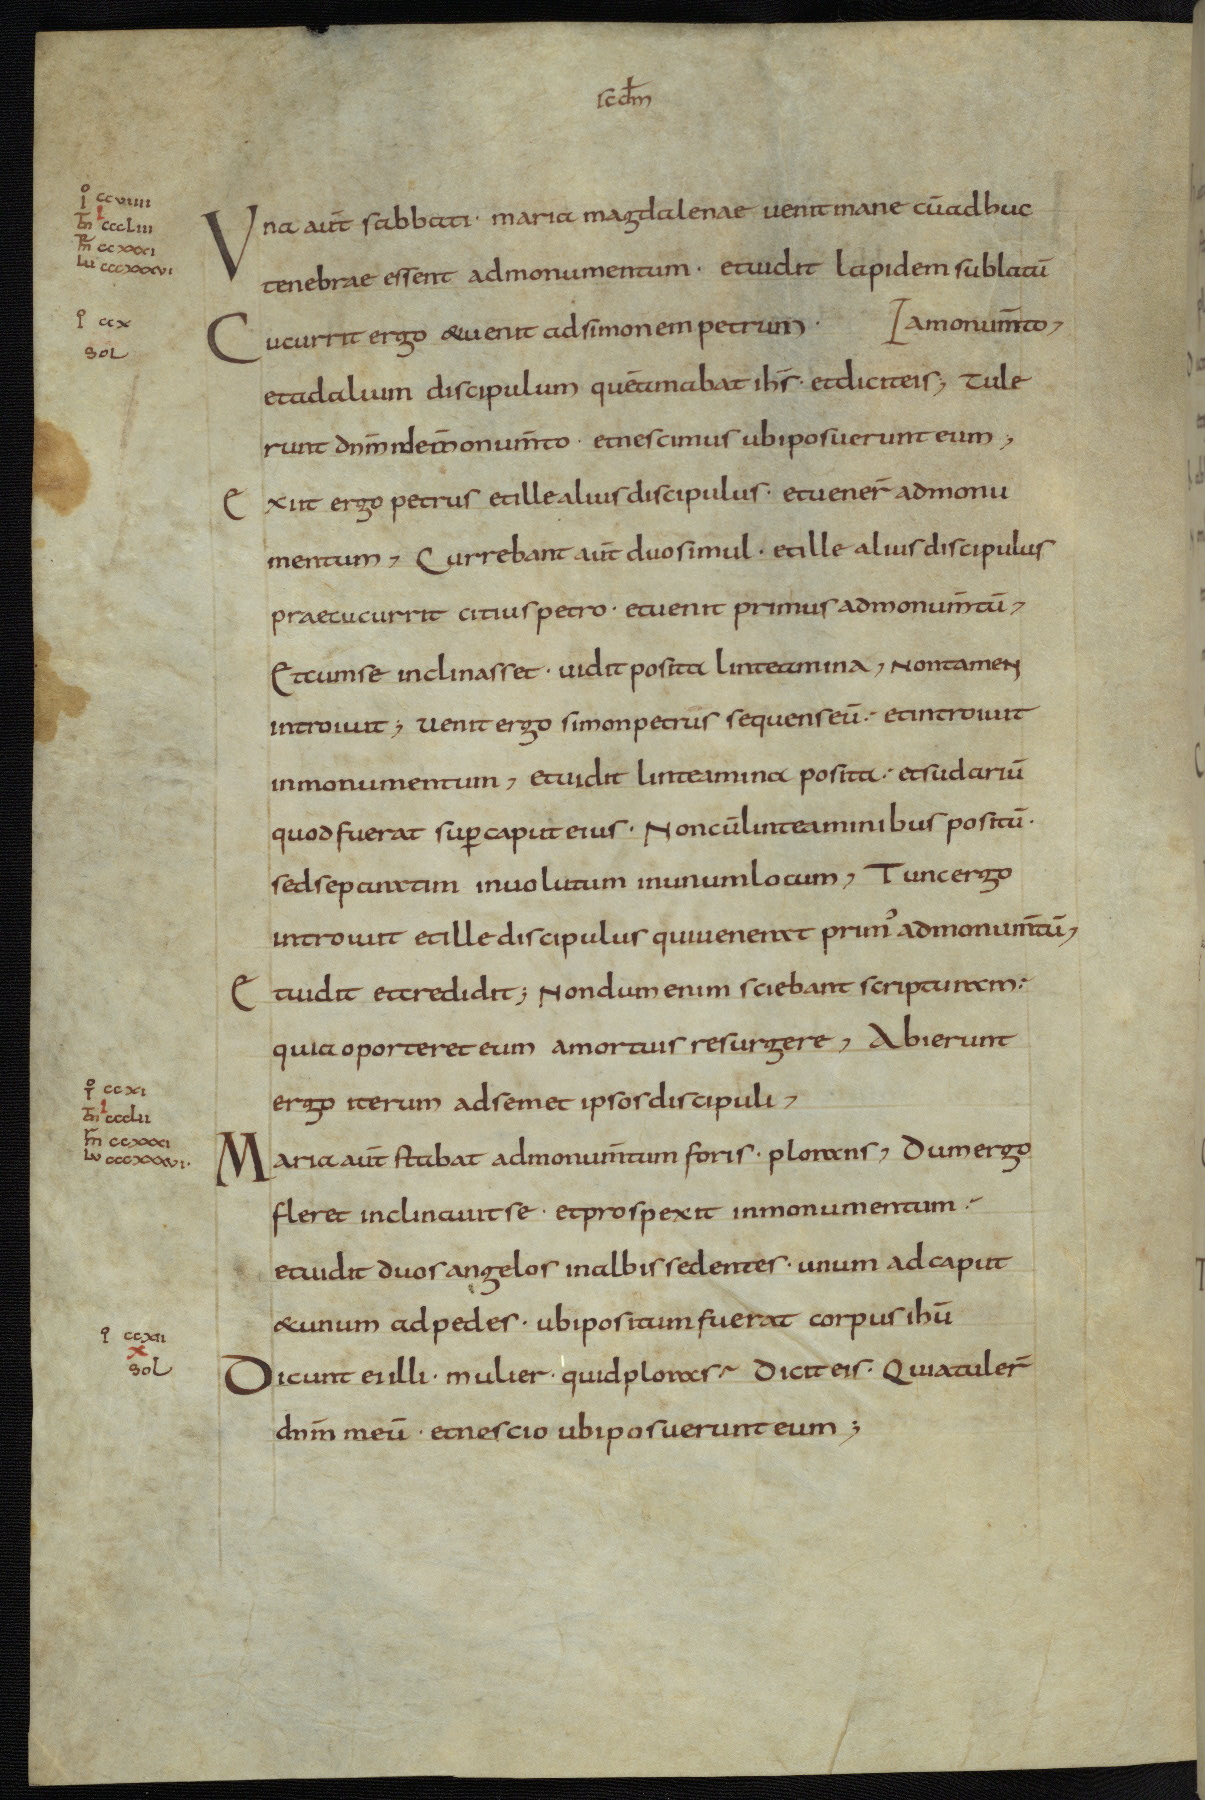 scdm̄
i̊ ccviiii
m̄ cccLiii
m̄ ccxxxi
Lu cccxxxvi
Una aut̄ sabbati · maria magdalenae uenit mane cū adhuc
tenebrae essent ad monumentum · et uidit lapidem sublatū
a monum̄to,
i̊ ccx
soL
Cucurrit ergo & uenit ad simonem petrum ·
et ad alium discipulum quē amabat ih̄s · et dicit eis; Tule
runt dn̄m de monum̄to · et nescimus ubi posuerunt eum,
Exiit ergo petrus et ille alius discipulus · et uener̄ ad monu
mentum, Currebant aut̄ duo simul · et ille alius discipulus
praecucurrit citius petro · et uenit primus ad monum̄tū,
Et cum se inclinasset · uidit posita linteamina, Non tamen
introiuit; Uenit ergo simon petrus sequens eū · et introiuit
in monumentum, et uidit linteamina posita · et sudariū
quod fuerat sup̄ caput eius · Non cū linteaminibus positū ·
sed separatim inuolutum in unum locum, Tunc ergo
introiuit et ille discipulus qui uenerat prim' ad monum̄tū,
Et uidit et credidit; Nondum enim sciebant scripturam ·
quia oporteret eum a mortuis resurgere, Abierunt
ergo iterum ad semet ipsos discipuli,
i̊ ccxi
m̄ cccLii
m̄ ccxxxi
Lu cccxxxvi.
Maria aut̄ stabat ad monum̄tum foris · plorans, Dum ergo
fleret inclinauit se · et prospexit in monumentum ·
et uidit duos angelos in albis sedentes · unum ad caput
& unum ad pedes · ubi positum fuerat corpus ihū
i̊ ccxii
x
soL
Dicunt ei illi · mulier · quid ploras · Dicit eis · Quia tuler̄
dn̄m meū · et nescio ubi posuerunt eum;